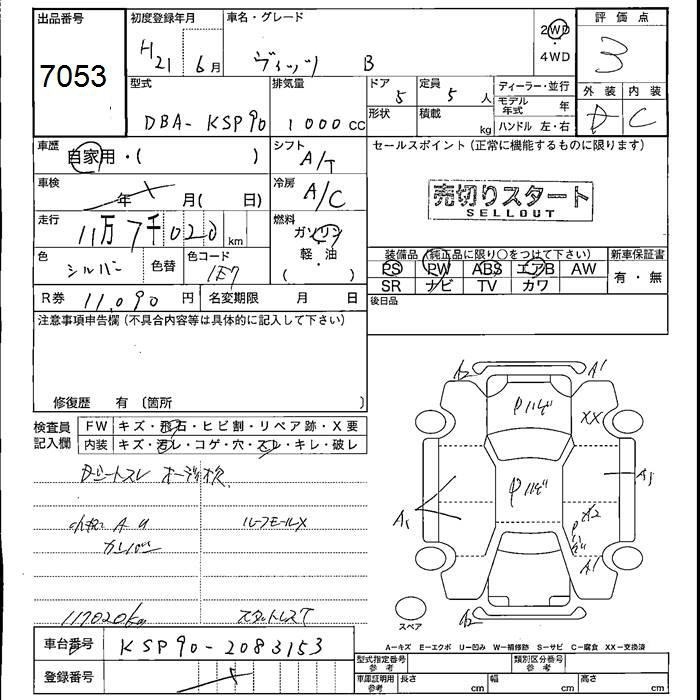 出品番号
7053
初度登録年月
H21 6月
車名・グレード
ヴィッツ B
2WD
・
4WD
評価点
3
外装 内装
D C
型式
DBA-KSP90
排気量
1000cc
ドア
5
定員
5人
形状
積載
kg
ディーラー・並行
モデル年式 年
ハンドル 左・右
車歴
自家用・( )
シフト
A/T
セールスポイント (正常に機能するものに限ります)
売切りスタート
SELLOUT
車検
年 月( 日)
冷房
A/C
走行
11万7千020km
燃料
ガソリン
軽・油
( )
色
シルバー
色替
色コード
1E7
装備品 (純正品に限り○をつけて下さい)
PS PW ABS エアB AW
SR ナビ TV カワ
新車保証書
有・無
R券 11,090円
名変期限 月 日
後日品
注意事項申告欄 (不具合内容等は具体的に記入して下さい)
修復歴 有 〔箇所 〕
検査員記入欄
FW キズ・飛石・ヒビ割・リペア跡・X要
内装 キズ・汚レ・コゲ・穴・スレ・キレ・破レ
小キズ A U
ルーフモールX
117020kg
スタットレスT
A2 A1
Pハゲ
XX
Pハゲ
A1 A3
A2
A1
A2
スペア
A-キズ E-エクボ U-凹み W-補修跡 S-サビ C-腐食 XX-交換済
車台番号
KSP90-2083153
登録番号
型式指定番号 参考
類別区分番号 参考
車庫証明用 参考
長さ cm
幅 cm
高さ cm